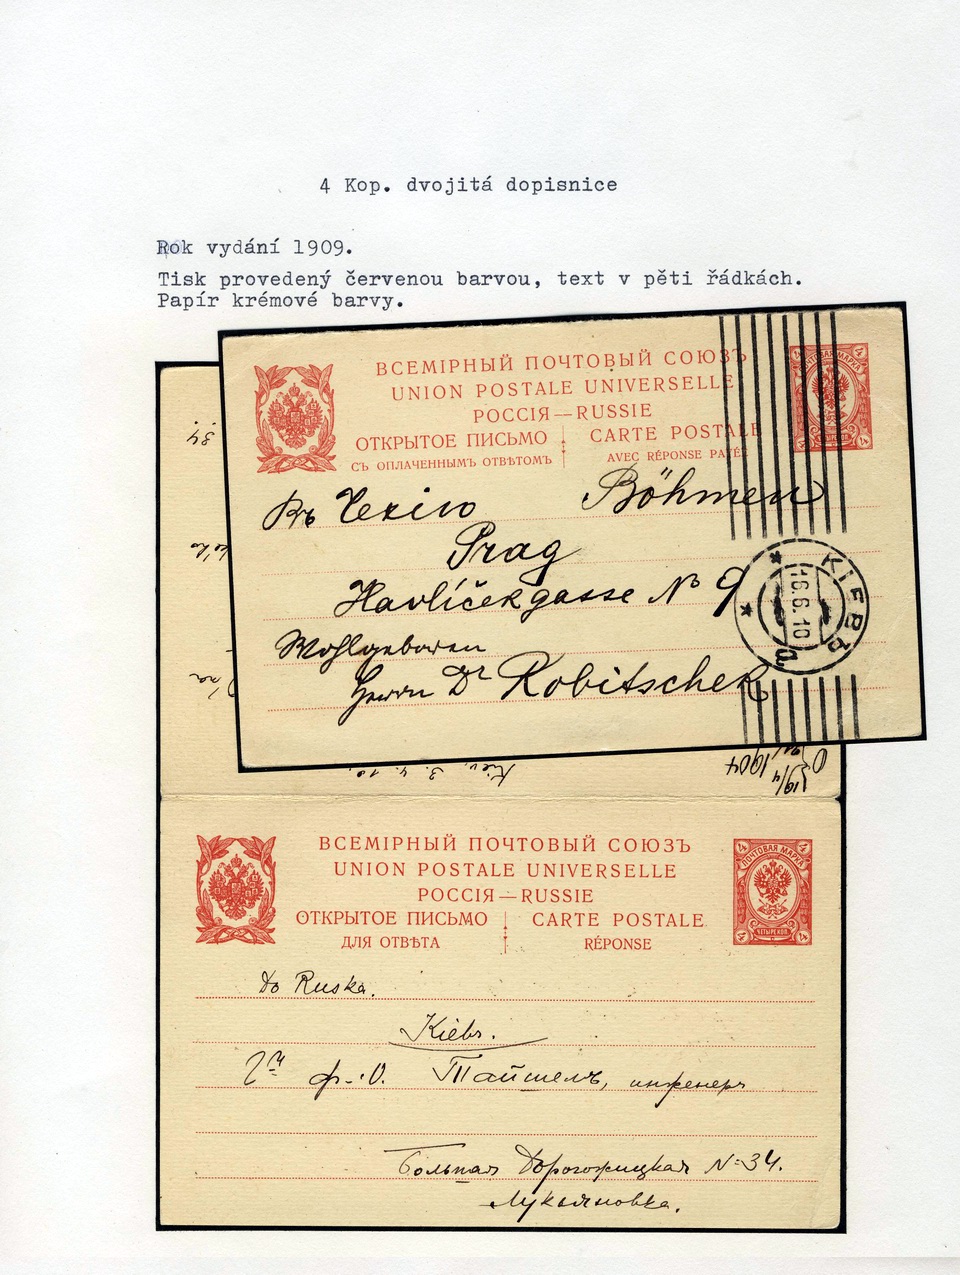 4 Kop. dvojitá dopisnice
Rok vydání 1909.
Tisk provedený červenou barvou, text v pěti řádkách.
Papír krémové barvy.
ВСЕМІРНЫЙ ПОЧТОВЫЙ СОЮЗЪ
UNION POSTALE UNIVERSELLE
РОССІЯ—RUSSIE
ОТКРЫТОЕ ПИСЬМО CARTE POSTALE
СЪ ОПЛАЧЕННЫМЪ ОТВѢТОМЪ AVEC RÉPONSE PAYÉE
4 4
ПОЧТОВАЯ МАРКА
Въ Чехію Böhmen
Prag
Havlíčekgasse № 9
Wohlgeboren
Herrn Dr Robitschek
КІЕВЪ
16.6.10
34.
Kiev, 3. 4. 10.
19/4 1904
ВСЕМІРНЫЙ ПОЧТОВЫЙ СОЮЗЪ
UNION POSTALE UNIVERSELLE
РОССІЯ—RUSSIE
ОТКРЫТОЕ ПИСЬМО CARTE POSTALE
ДЛЯ ОТВѢТА RÉPONSE
4 4
ПОЧТОВАЯ МАРКА
ЧЕТЫРЕ КОП.
4 4
Do Ruska.
Kiebъ.
Гну Ф. О. Тайшелъ, инженеръ
Большая Дорогожицкая № 34.
Лукьяновка.